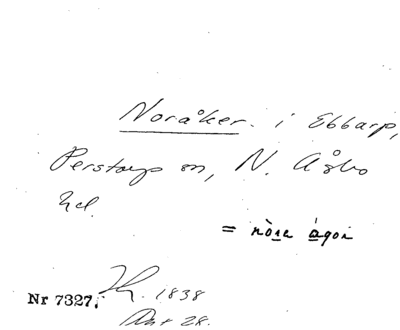 Noråker. i Ebbarp,
Perstorps sn, N. Åsbo
hd.
= nòra ágor
Nr 7327, 1838